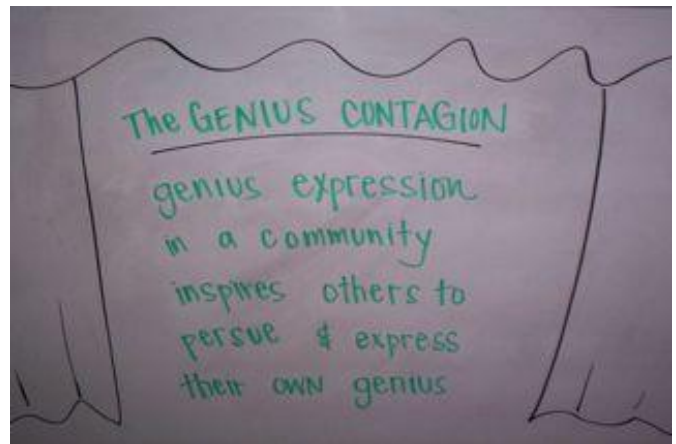 The GENIUS CONTAGION
genius expression
in a community
inspires others to
persue & express
their OWN genius